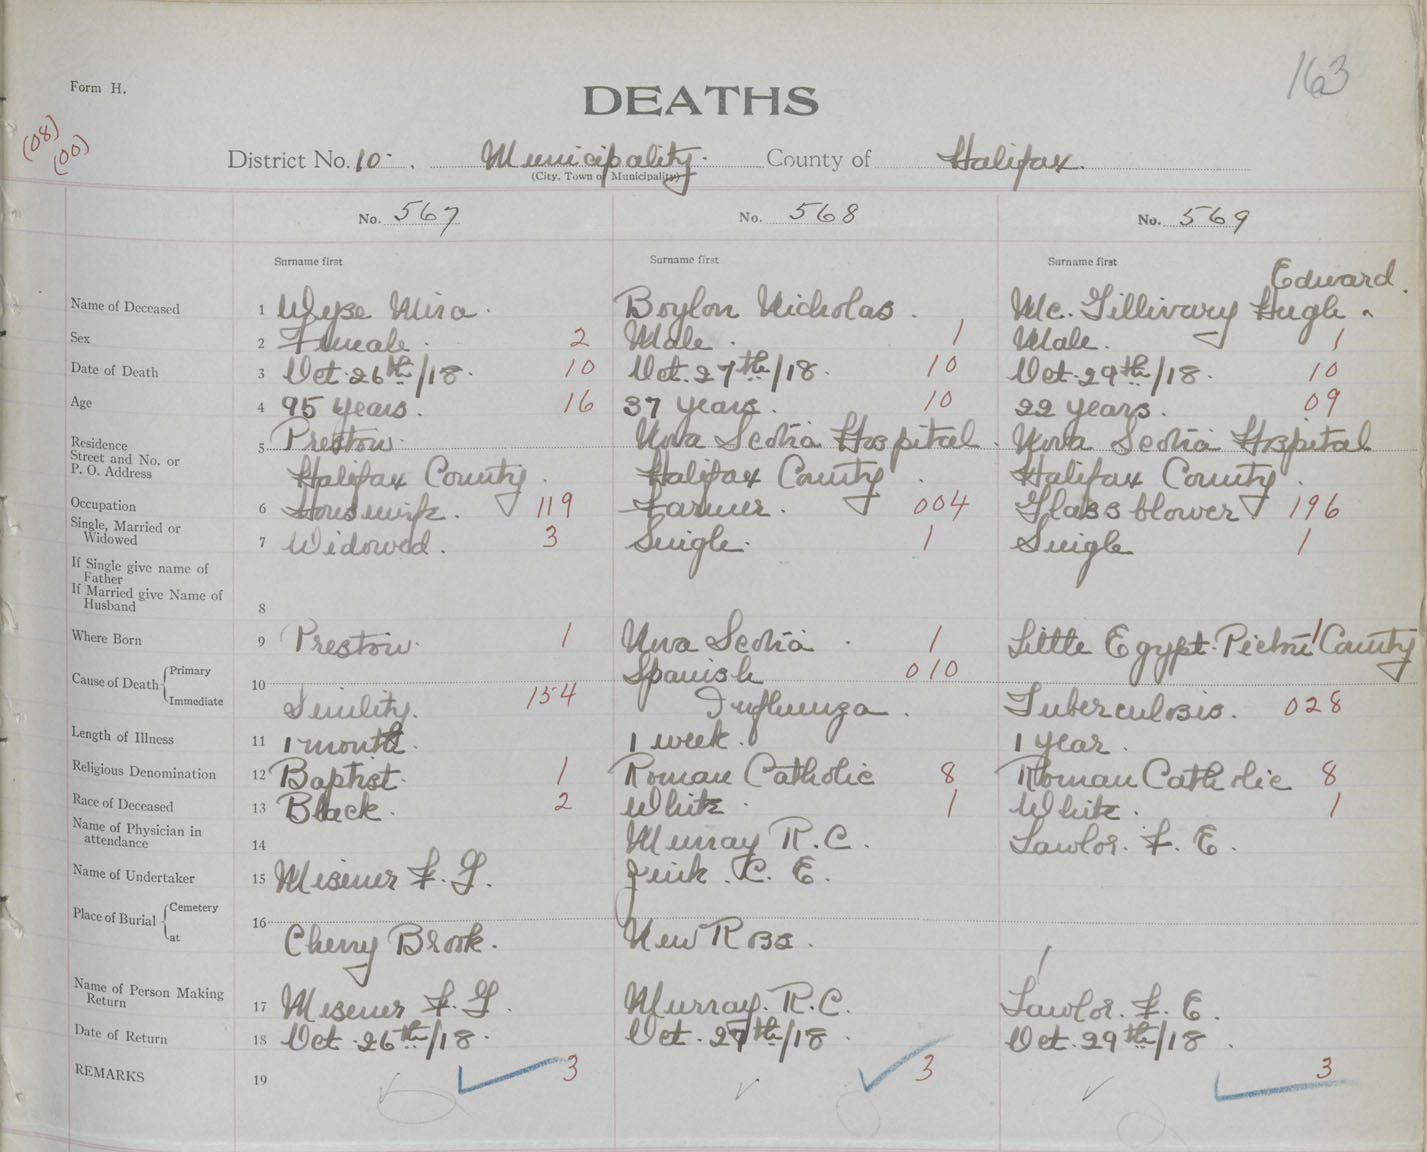 163
Form H.
DEATHS
(08)
(00)
District No. 10. Municipality. County of Halifax.
(City, Town or Municipality)
No. 567 No. 568 No. 569
Surname first Surname first Surname first
Edward.
Name of Deceased 1 Wyse Mina. Boylon Nicholas. Mc. Gillivary Hugh ^
Sex 2 Female. 2 Male. 1 Male. 1
Date of Death 3 Oct. 26th/18. 10 Oct. 27th/18. 10 Oct. 29th/18. 10
Age 4 95 years. 16 37 years. 10 22 years. 09
Residence 5 Preston. Nova Scotia Hospital. Nova Scotia Hospital
Street and No. or
P. O. Address Halifax County. Halifax County. Halifax County.
Occupation 6 Housewife. 119 Farmer. 004 Glass blower 196
Single, Married or
Widowed 7 Widowed. 3 Single. 1 Single 1
If Single give name of
Father
If Married give Name of
Husband 8
Where Born 9 Preston. 1 Nova Scotia. 1 Little Egypt. Pictou County 1
Cause of Death Primary 10 Spanish 010
Immediate Senility. 154 Influenza. Tuberculosis. 028
Length of Illness 11 1 month. 1 week. 1 year.
Religious Denomination 12 Baptist. 1 Roman Catholic 8 Roman Catholic 8
Race of Deceased 13 Black. 2 White. 1 White. 1
Name of Physician in
attendance 14 Murray R.C. Lawlor. F. E.
Name of Undertaker 15 Misener F. G. Zink. C. E.
Place of Burial Cemetery 16
at Cherry Brook. New Ross.
Name of Person Making
Return 17 Misener F. G. Murray. R.C. Lawlor. F. E.
Date of Return 18 Oct. 26th/18. Oct. 27th/18. Oct. 29th/18.
REMARKS 19 3 3 3